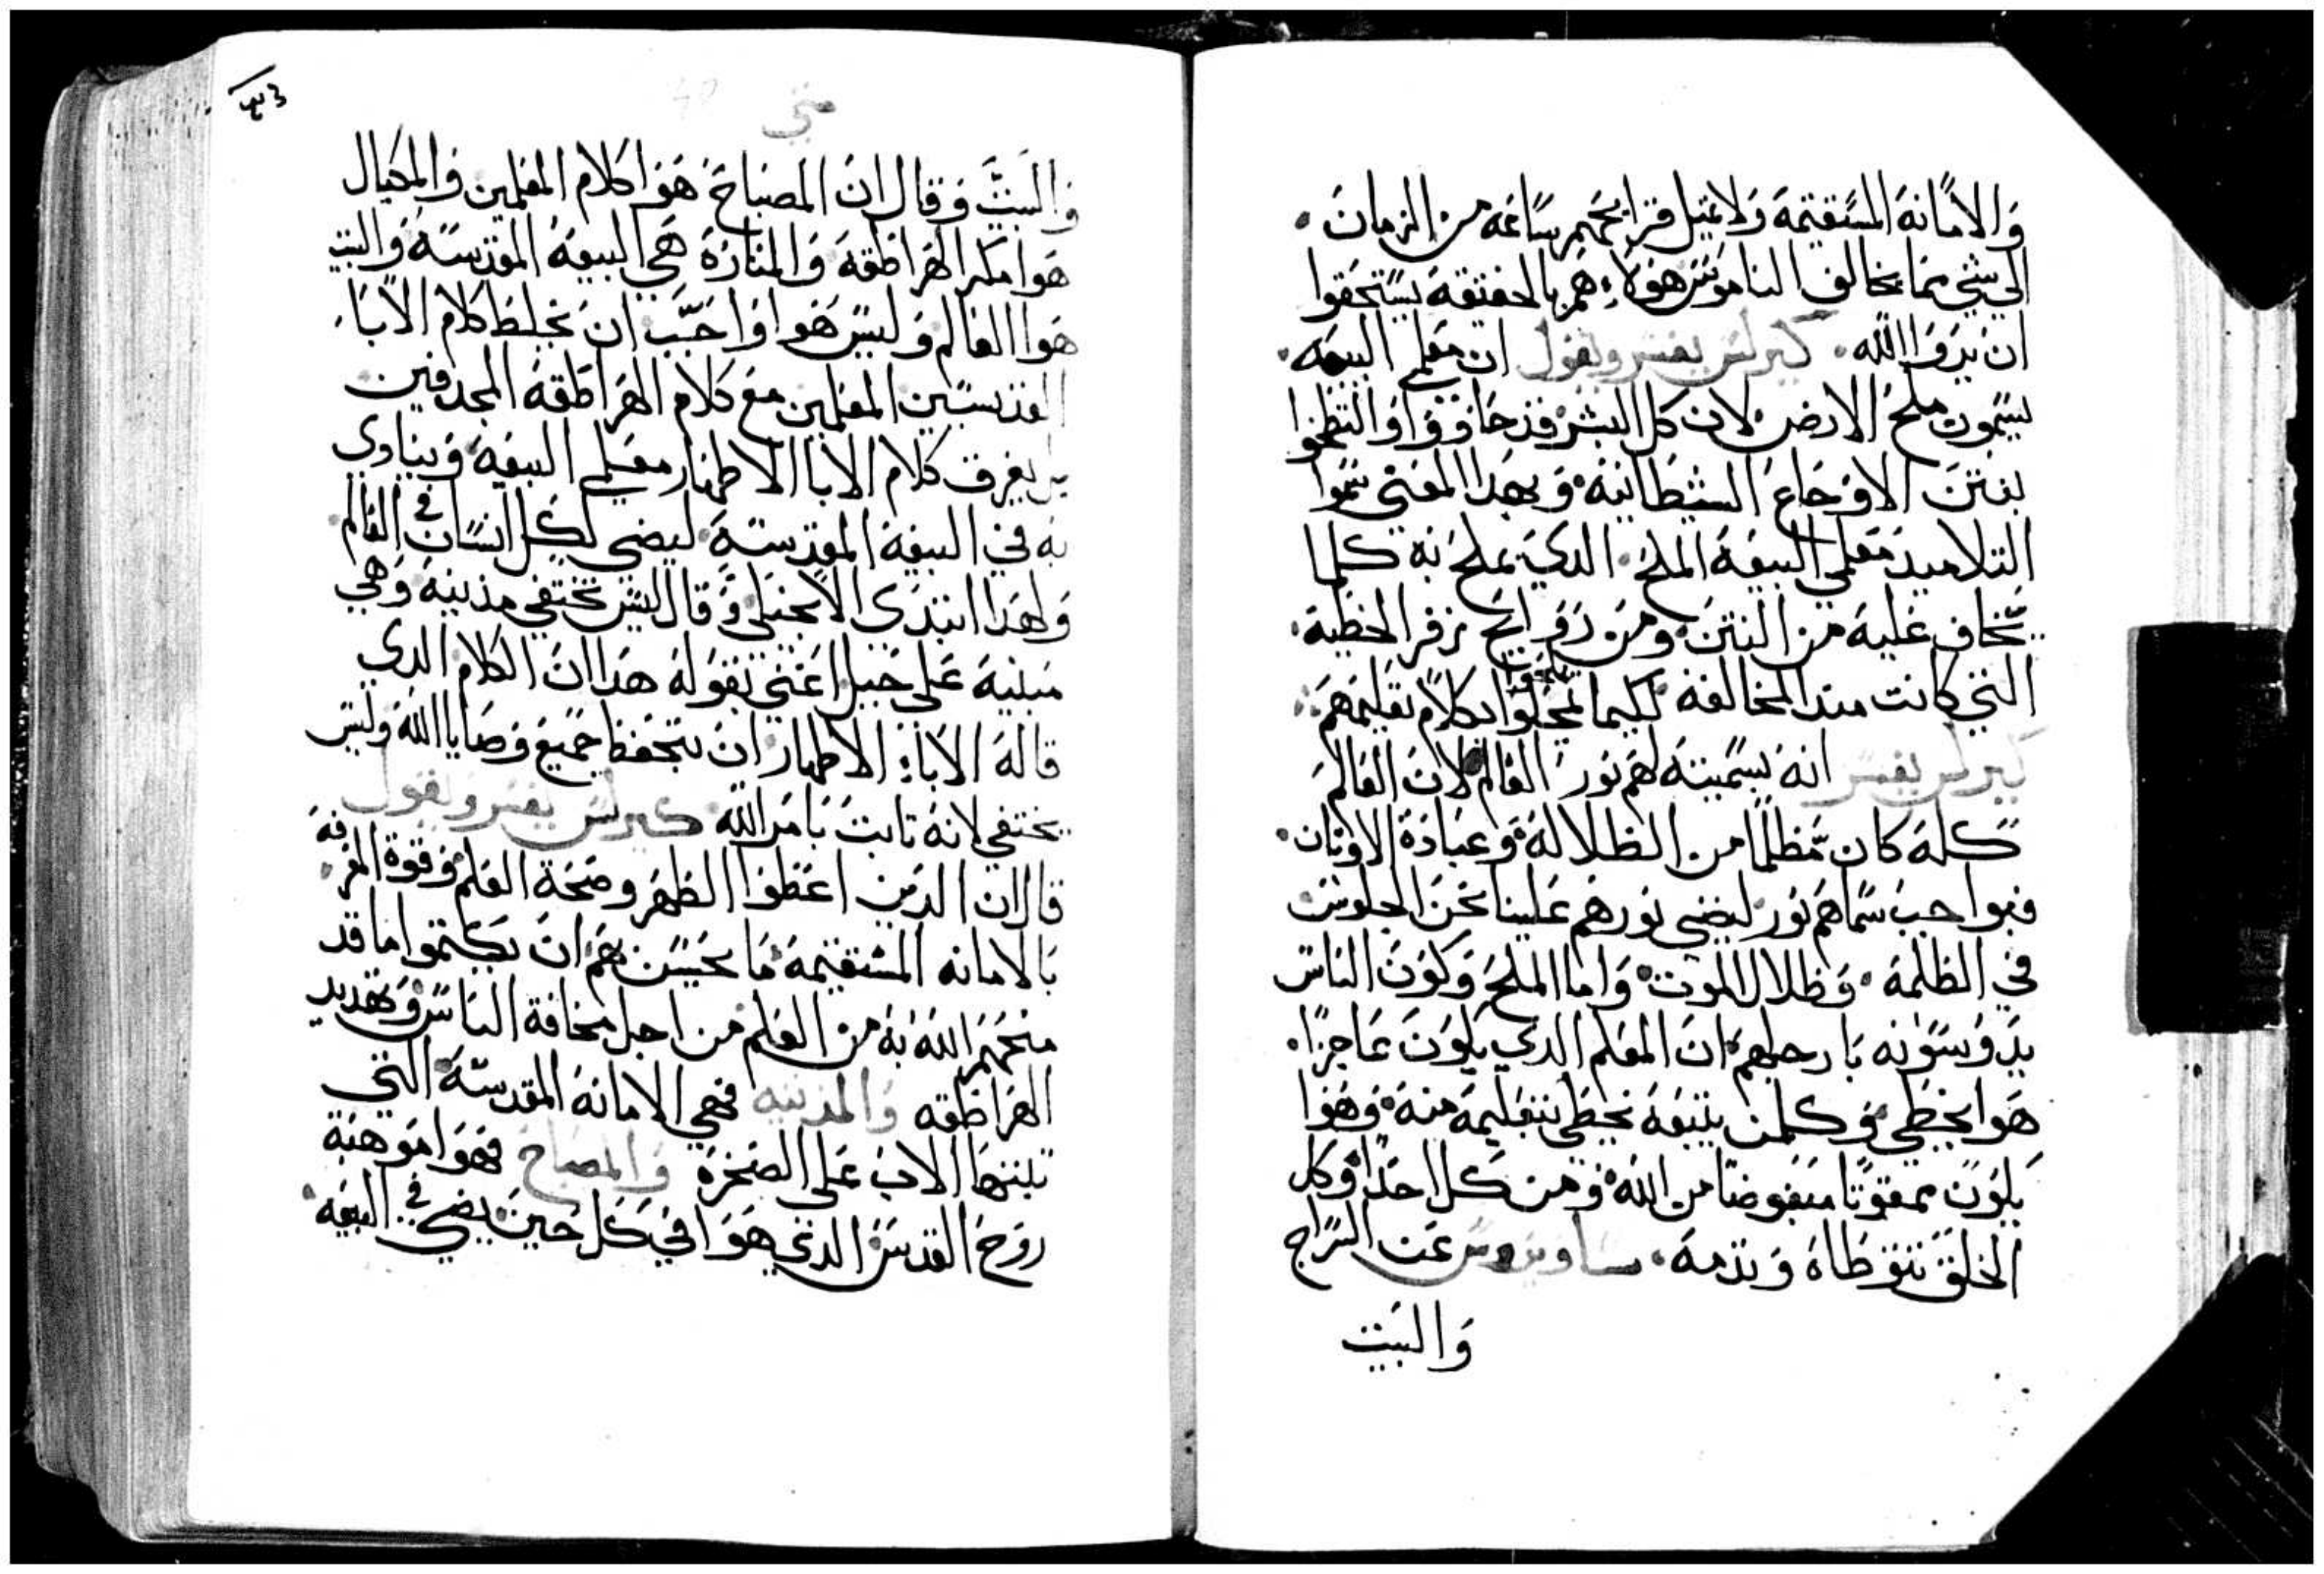 والامانة المستقيمة ولا تميل قرايحهم ساعه من الزمان
الي شي مما يخالف الناموس هولاء هم بالحقيقة يستحقوا
ان يروا الله كيرلس يفسر ويقول ان معلمي البيعه
يسمون ملح الارض لان كل البشر قد جافووا والتطخوا
بنتن الاوجاع الشيطانية وبهدا المعني سموا
التلاميد معلمي البيعة الملح الدي يملح به كلما
يخاف عليه من النتن ومن روايح زفر الخطية
التي كانت مند المخالفة لكيما يملحوا بكلام تعليمهم
كيرلس يفسر انه بسميته لهم نور العالم لان العالم
كله كان مظلما من الظلالة وعبادة الاوتان
فبواجب سماهم نور ليضي نورهم علينا نحن الجلوس
في الظلمة وظلال الموت واما الملح وكون الناس
يدوسونه بارجلهم ان المعلم الدي يكون عاجزا
هوا يخطي وكلمن يتبعه يخطي بتعليمه منه وهوا
يكون ممقوتا مبغوضا من الله ومن كل احدا وكل
الخلق تتوطاه وتدمه ساويروس عن السراج
والبيت
متي
والبيت وقال ان المصباح هوا كلام المعلمين والمكيال
هوا مكر الهراطقة والمنارة هي البيعة المقدسة والبيت
هوا العالم وليس هوا واجب ان يخلط كلام الاباء
القديسين المعلمين مع كلام الهراطقة المجدفين
بل يفرق كلام الابا الاطهار معلمي البيعة وينادي
به في البيعة المقدسة ليضي لكل انسان في العالم
ولهدا ابتدي الانجيلي وقال ليس تختفي مدينة وهي
مبنية علي جبل اعني بقوله هدا ان الكلام الدي
قاله الاباء الاطهار ان يتحفظ جميع وصايا الله وليس
يختفي لانه تابت بامر الله كيرلس يفسر ويقول
قال ان الدين اعطوا الطهر وصحة العلم وقوة المعرفة
بالامانه المستقيمة ما يحسن بهم ان يكتموا ما قد
منحهم الله به من العلم من اجل مخافة الناس وتهديد
الهراطقه والمدينه فهي الامانة المقدسة التي
تبنتها الاب علي الصخرة والمصباح فهوا موهبة
روح القدس الدي هوا في كل حين يضي في البيعه